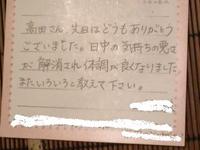 高田さん、先日はどうもありがとう
ございました。日中の気持ちの悪さ
が解消され体調が良くなりました
またいろいろと教えて下さい。